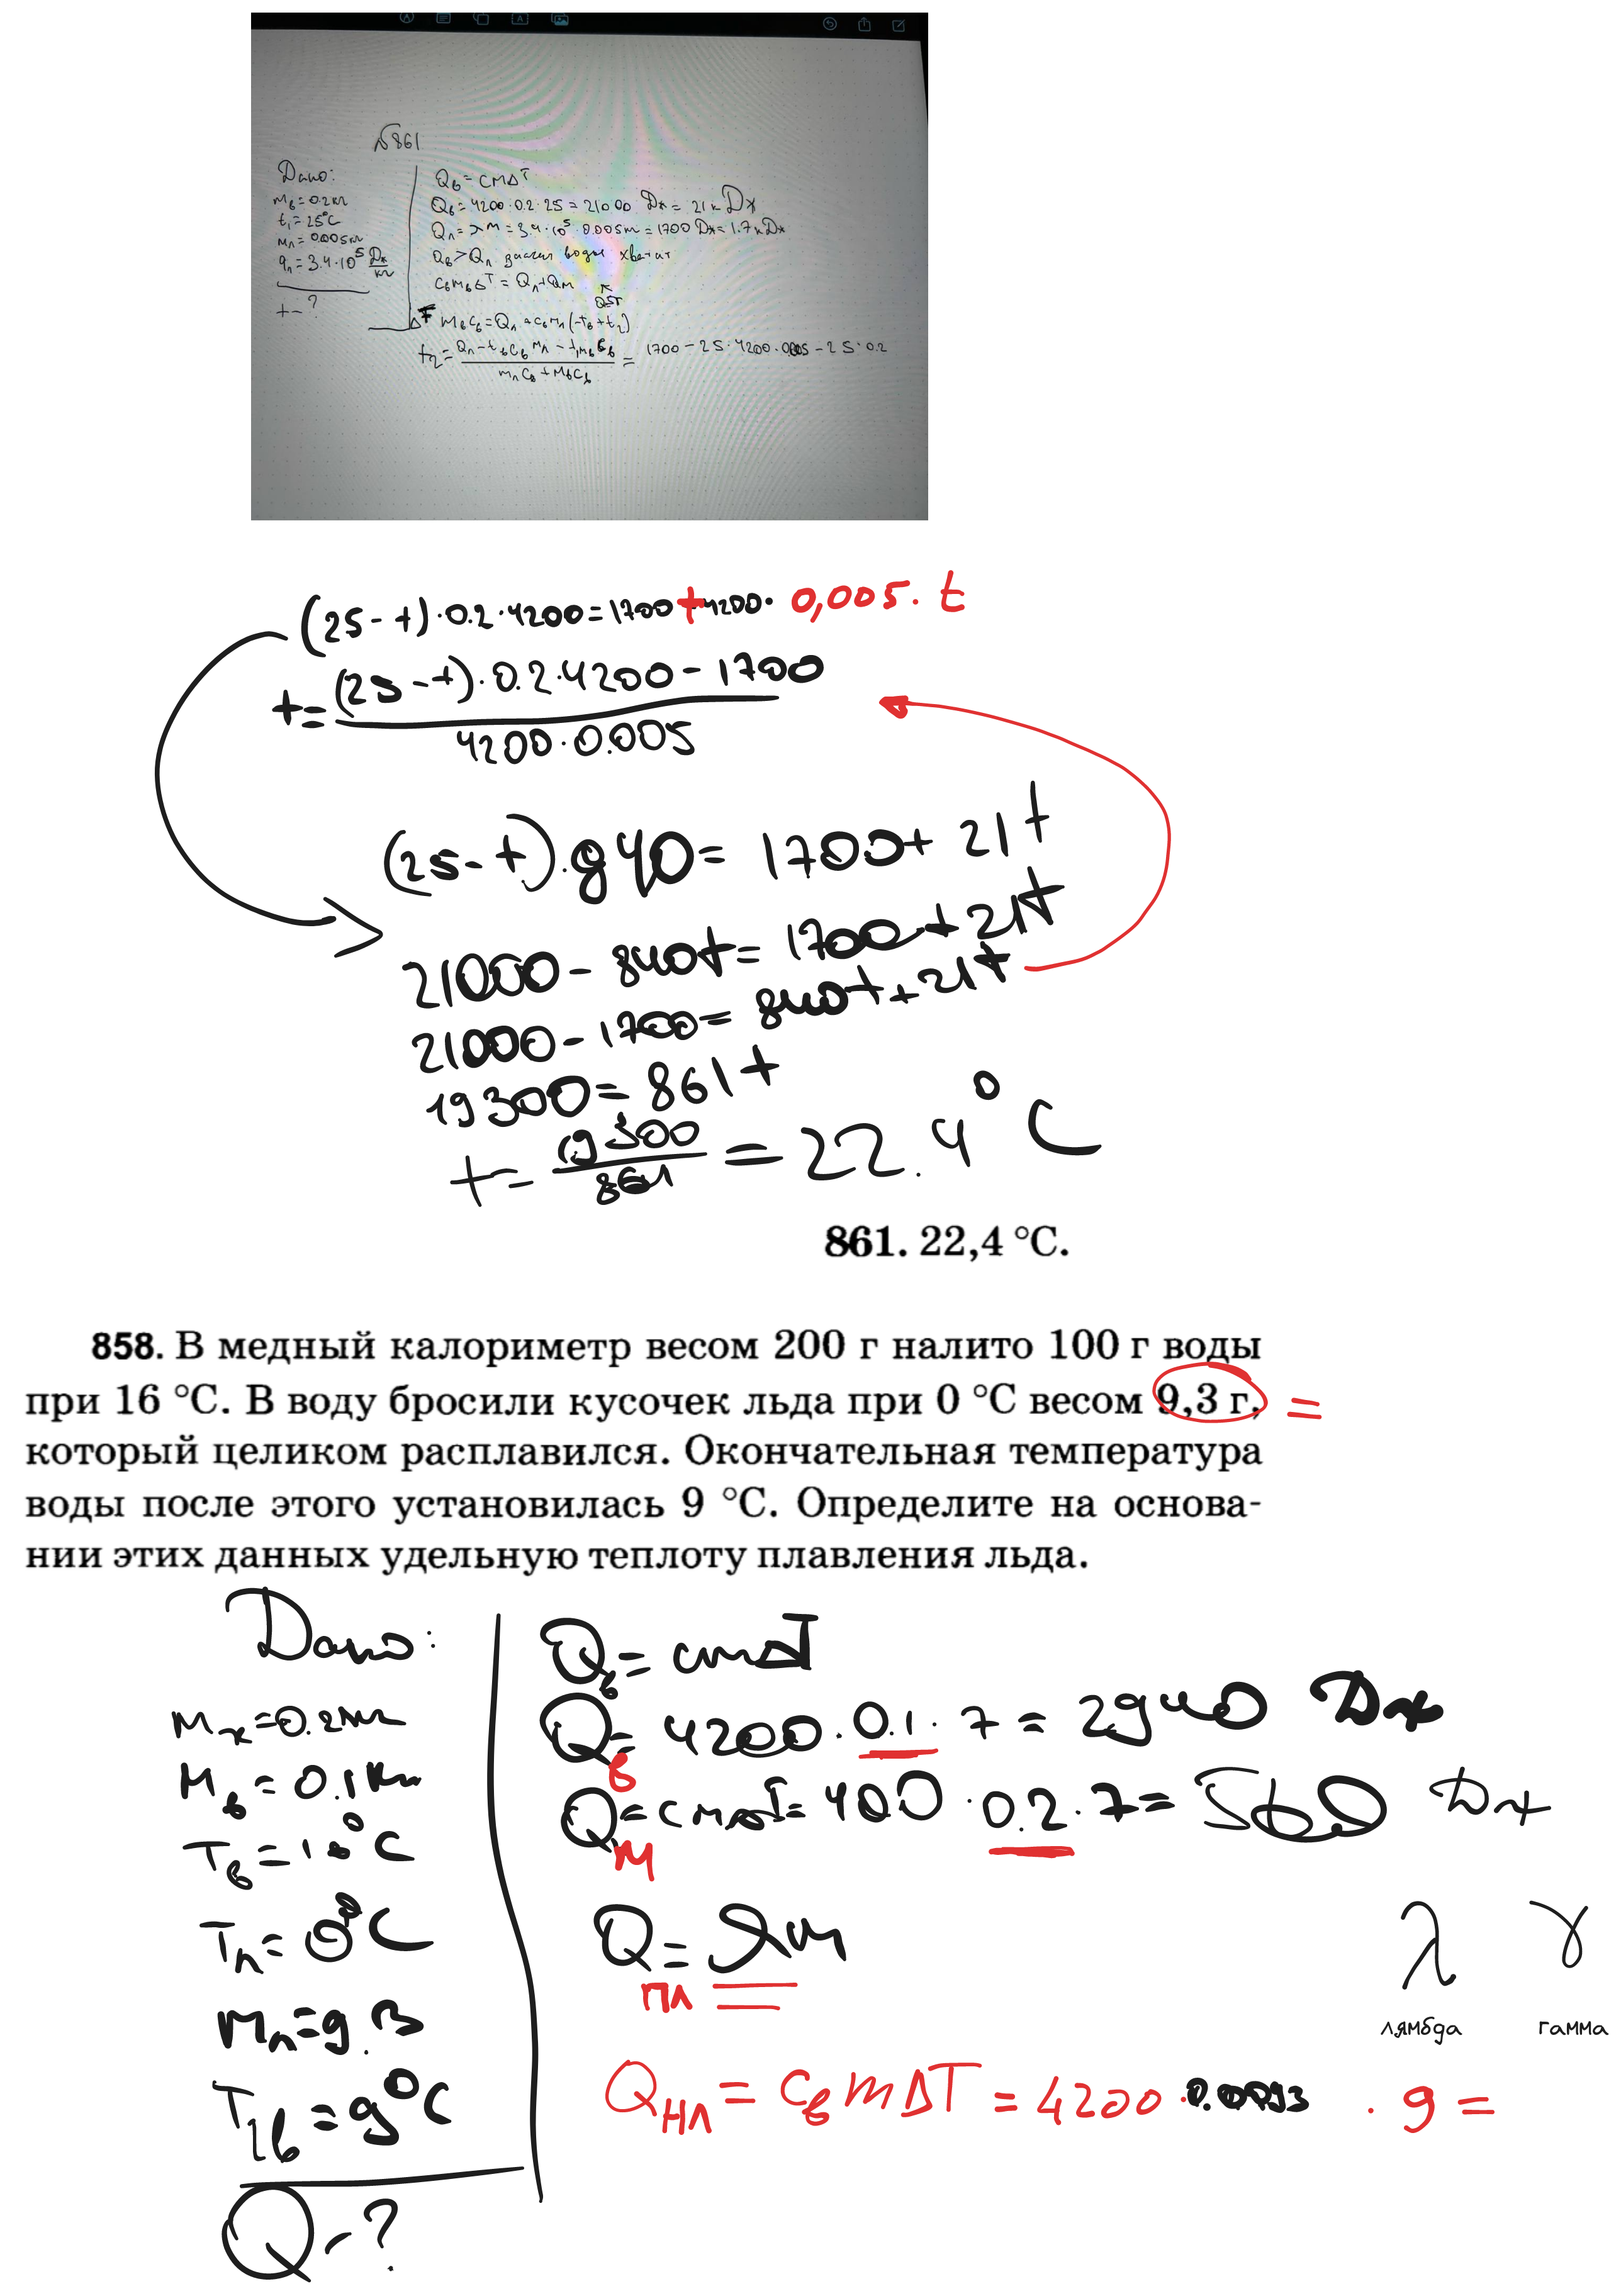 №861
Дано:
mв=0.2кг
t₁=25°C
mл=0.005кг
qл=3.4·10⁵ Дж/кг
t-?
Qв=cmΔT
Qв=4200·0.2·25=21000 Дж=21кДж
Qл=λm=3.4·10⁵·0.005m=1700Дж=1.7кДж
Qв>Qл значит воды хватит
cвmвΔT=Qл+Qм
mвcв=Qл+cвmл(-tв+t₂)
t₂= (Qл-tвcвmл-t₁mвcв)/(mлcв+mвcв) = 1700-25·4200·0.005-25·0.2
(25-t)·0.2·4200=1700+4200·0,005·t
t=((25-t)·0.2·4200-1700)/(4200·0.005)
(25-t)·840=1700+21t
21000-840t=1700+21t
21000-1700=840t+21t
19300=861t
t=19300/861=22.4°C
861. 22,4 °C.
858. В медный калориметр весом 200 г налито 100 г воды
при 16 °C. В воду бросили кусочек льда при 0 °C весом 9,3 г, =
который целиком расплавился. Окончательная температура
воды после этого установилась 9 °C. Определите на основа-
нии этих данных удельную теплоту плавления льда.
Дано:
Mк=0.2кг
Mв=0.1кг
Tл=0°C
Mл=9.3
T1в=9°C
Q-?
Qв=cmΔT
Qв=4200·0.1·7=2940 Дж
Qм=cmΔT=400·0.2·7=560 Дж
Qпл=λm
λ γ
лямбда гамма
Qнл=cвmΔT=4200·0.0093·9=